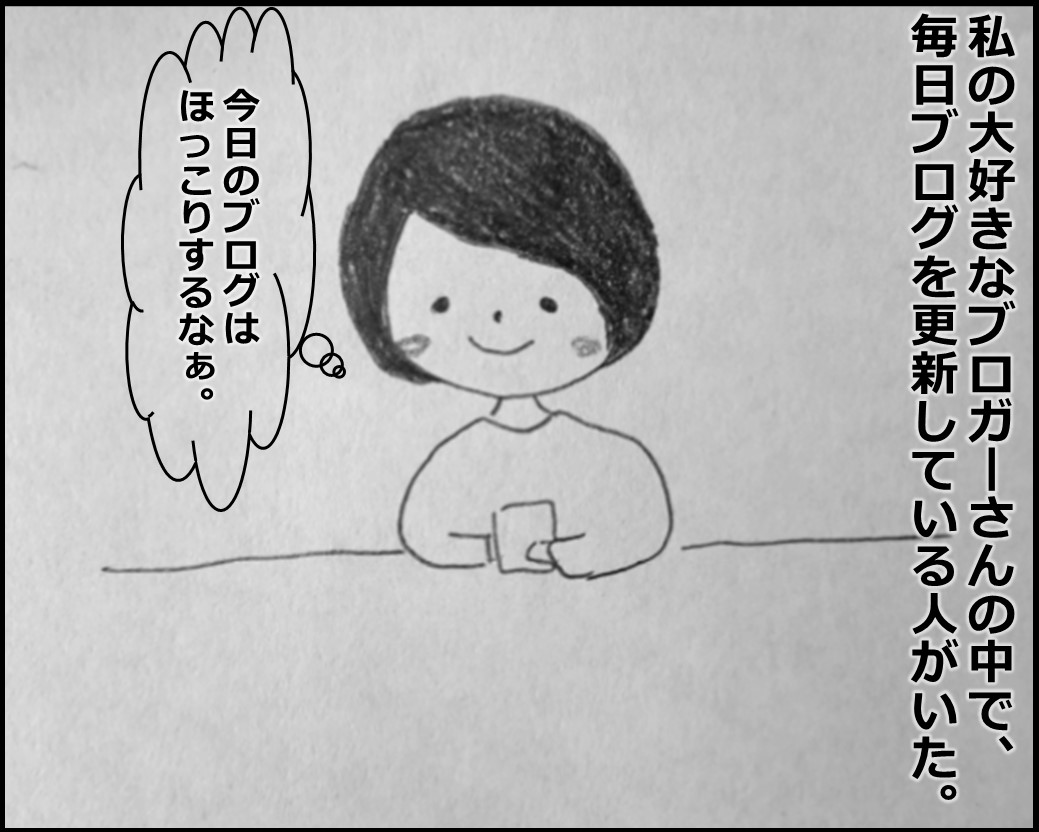 私の大好きなブロガーさんの中で、
毎日ブログを更新している人がいた。
今日のブログは
ほっこりするなぁ。